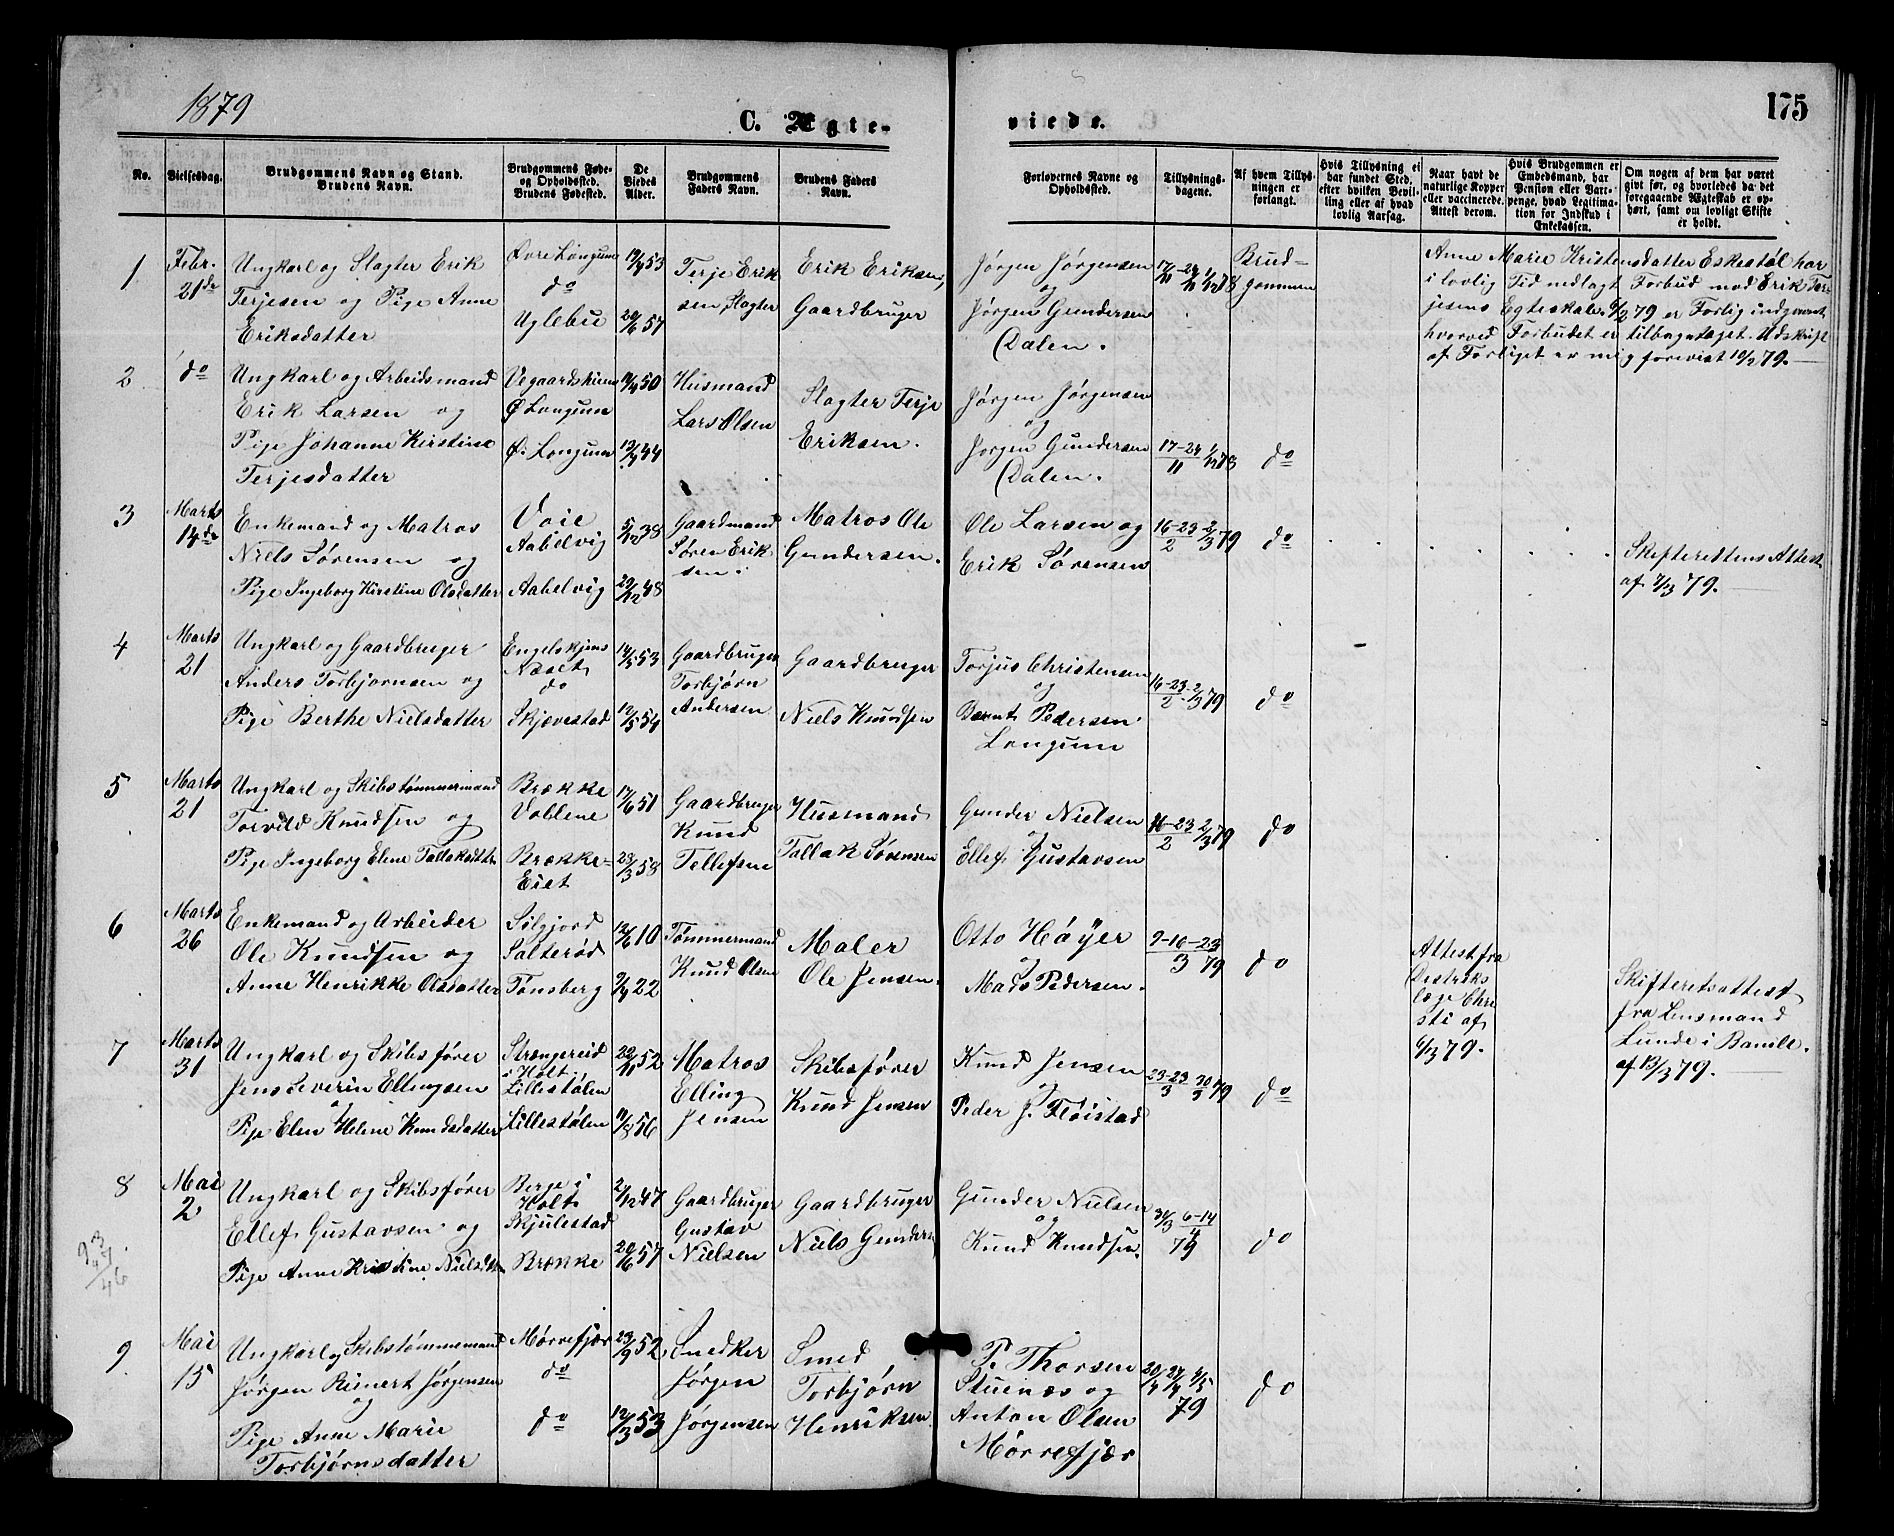 1879
C. Ægte-
viede.
175
No.
Vielsesdag.
Brudgommens Navn og Stand.
Brudens Navn.
Brudgommens Føde-
og Opholdssted.
Brudens Fødested.
De
Viedes
Alder.
Brudgommens
Faders Navn.
Brudens Faders
Navn.
Forlovernes Navne og
Opholdssted.
Tillysnings-
dagene.
Af hvem Tillys-
ningen er
forlangt.
Hvis Tillysning ei
har fundet Sted,
efter hvilken Bevil-
ling eller af hvad
lovlig Aarsag.
Naar havt de
naturlige Kopper
eller vaccinerede.
Attest derom.
Hvis Brudgommen er
Embedsmand, har
Pension eller Vart-
penge, hvad Legitima-
tion for Indskud i
Enkekassen.
Om nogen af dem har været
gift før, og hvorledes da det
foregaaende Ægteskab er op-
hørt, samt om lovligt Skifte
er holdt.
1
Febr.
21de
Ungkarl og Slagter Erik
Terjesen og Pige Anne
Eriksdatter
Øvre Longum
do
Uglebu
19/9 53
20/6 57
Terje Erik
sen, Slagter
Erik Eriksen,
Gaardbruger
Jørgen Jørgensen
og
Jørgen Gundersen
Dalen.
17/11-24/11 1/12 78
Brud-
gommen
Anne Marie Kristensdatter Eskestøl har
i lovlig Tid nedlagt Forbud mod Erik Ter-
jesens Egteskab. 6/2 79 er Forlig indgaaet,
hvorved Forbudet er tilbagetaget. Udskrift
af Forliget er mig forevist 10/2 79.
2
do
Ungkarl og Arbeidsmand
Erik Larsen og
Pige Johanne Kirstine
Terjesdatter
Vegaardsheien
Ø Longum
Ø. Longum
11/4 50
13/9 44
Husmand
Lars Olsen
Slagter Terje
Eriksen.
Jørgen Jørgensen
og
Jørgen Gundersen
Dalen.
17-24/11 1/12 78
do
3
Marts
14de
Enkemand og Matros
Niels Sørensen og
Pige Ingeborg Kirstine Olsdatter
Voie
Aabelvig
Aabelvig
5/12 38
29/12 48
Gaardmand
Søren Erik
sen.
Matros Ole
Gundersen.
Ole Larsen og
Erik Sørensen
16-23/2 2/3 79
do
Skifterettens Attest
af 7/3 79.
4
Marts
21
Ungkarl og Gaardbruger
Anders Torbjørnsen og
Pige Berthe Nielsdatter
Engelskjøns
do
Skjævestad
14/5 53
12/5 54
Gaardbruger
Torbjørn
Andersen
Gaardbruger
Niels Knudsen
Torjus Christensen
og
Bernt Pedersen
Longum
16-23/2 2/3 79
do
5
Marts
21
Ungkarl og Skibstømmermand
Torvild Knudsen og
Pige Ingeborg Elene Tallaksdatter
Brække
Voblene
Brække-
Eiet
17/6 51
23/3 58
Gaardbruger
Knud
Tellefsen
Husmand
Tallak Sørensen
Gunder Nielsen
og
Ellef Gustavsen
16-23/2 2/3 79
do
6
Marts
26
Enkemand og Arbeider
Ole Knudsen og
Anne Henrikke Olsdatter
Sølgjord
Salterød
Tønsberg
12/6 10
2/9 22
Tømmermand
Knud Olsen
Maler
Ole Jensen.
Otto Høyer
og
Mads Pedersen.
9-16-23/3 79
do
Attest fra
Distrikts
læge Chri
sti af
6/3 79.
Skifteretsattest
fra Lensmand
Lunde i Bamle.
af 13/3 79.
7
Marts
31
Ungkarl og Skibsfører
Jens Severin Ellingsen
og
Pige Elen Helene Knudsdatter
Strængereid
i Holt
Lillestølen
Lillestølen
22/11 52
11/8 56
Matros
Elling
Jensen
Skibsfører
Knud Jensen
Knud Jensen
og
Peder J. Fløistad
23-23/3 30/3 79
do
8
Mai
2
Ungkarl og Skibsfører
Ellef Gustavsen og
Pige Anne Kristine Nielsdtr
Berge i
Holt
Skjulestad
Brække
2/12 47
20/6 57
Gaardbruger
Gustav
Nielsen
Gaardbruger
Niels Gunders
Gunder Nielsen
og
Knud Knudsen.
31/3 6-14/4
79
do
9
Mai
15
Ungkarl og Skibstømmemand
Jørgen Reinert Jørgensen
og
Pige Anne Marie
Torbjørnsdatter
Mørrefjær
do
do
23/9 52
12/3 53
Snedker
Jørgen
Jørgensen
Smed
Torbjørn
Henriksen
P. Thorsen
Stuenes og
Anton Olsen
Mørrefjær
20/4 27/4 4/5
79
do